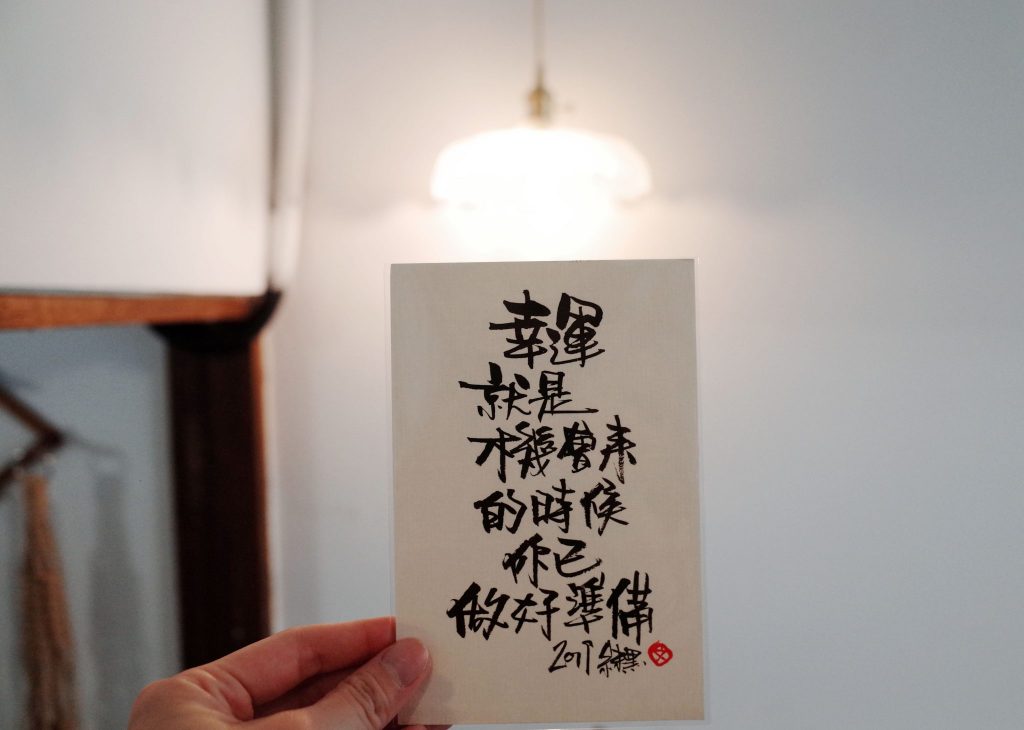 幸運
就是
機會來
的時候
你已
做好準備